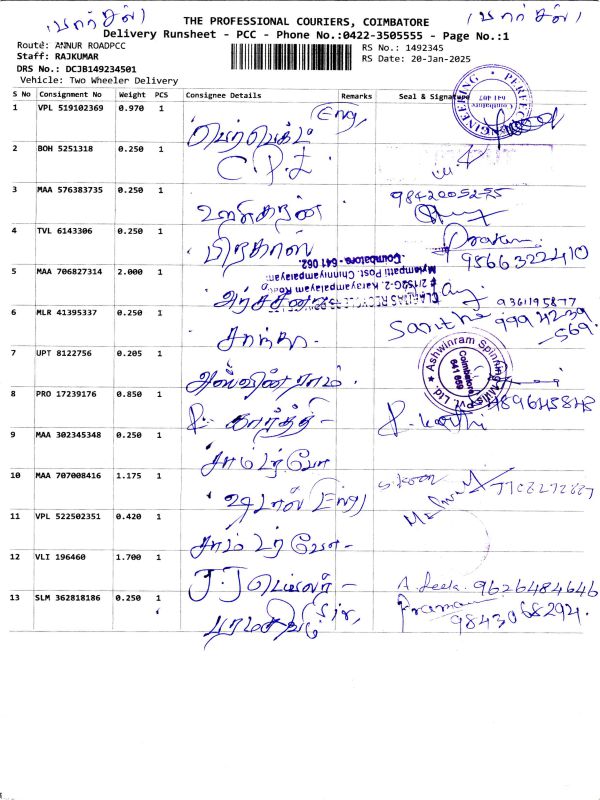 (பார்சல்)
(பார்சல்)
THE PROFESSIONAL COURIERS, COIMBATORE
Delivery Runsheet - PCC - Phone No.:0422-3505555 - Page No.:1
Route: ANNUR ROADPCC
RS No.: 1492345
Staff: RAJKUMAR
RS Date: 20-Jan-2025
DRS No.: DCJB149234501
Vehicle: Two Wheeler Delivery
S No Consignment No Weight PCS Consignee Details Remarks Seal & Signature
1 VPL 519102369 0.970 1 பெர்பெக்ட் Eng,
PERFECT ENGINEERING Coimbatore 641 407
2 BOH 5251318 0.250 1 C.P.L
3 MAA 576383735 0.250 1 9842005255
4 TVL 6143306 0.250 1 பிரகாஸ் 9566322410
5 MAA 706827314 2.000 1 அர்ச்சனா
# 2/1S2G-2, Karayampalayam Road,
Mylampatti Post, Chinniyampalayam,
Coimbatore - 641 062.
6 MLR 41395337 0.250 1 சாந்தி 99942-39
-569.
7 UPT 8122756 0.205 1 அஸ்வின் ராம்.
Ashwinram Spinning Mills Pvt. Ltd. Coimbatore 641 659
8 PRO 17239176 0.850 1 P. கார்த்தி P. Karthi
9 MAA 302345348 0.250 1
10 MAA 707008416 1.175 1 Eng
11 VPL 522502351 0.420 1
12 VLI 196460 1.700 1 J.J டெய்லர் - A. Leela. 9626484646
13 SLM 362818186 0.250 1 பரமசிவம் Sir, 9843068294.